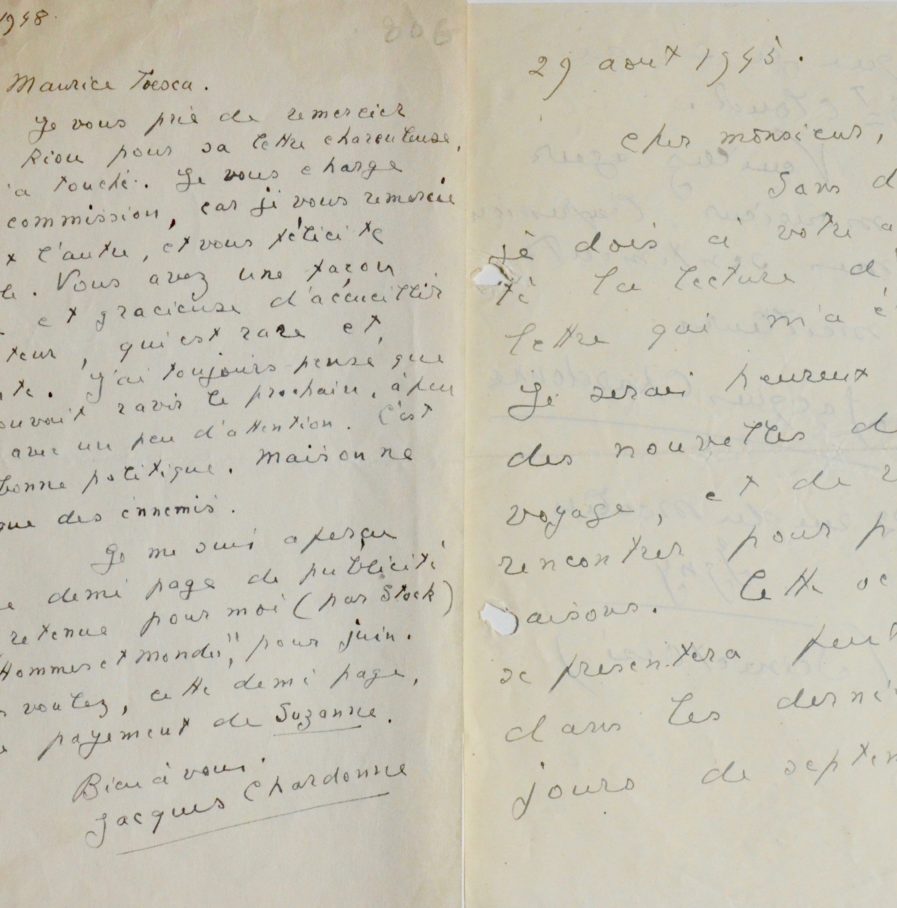 1948.
806
Maurice Toesca.
Je vous prie de remercier
Riou pour sa lettre chaleureuse,
'a touché. Je vous charge
commission, car je vous remercie
l'autre, et vous félicite
Vous avez une façon
et gracieuse d'accueillir
teur, qui est rare et
te. J'ai toujours pensé que
ouvait ravir le prochain, à peu
avec un peu d'attention. C'est
bonne politique. Mais on ne
que des ennemis.
Je me suis aperçu
e demi page de publicité
retenue pour moi (par Stock)
Hommes et Mondes", pour juin.
voulez, cette demi page,
payement de Suzanne.
Bien à vous.
Jacques Chardonne
29 aout 1945.
Cher monsieur,
Sans d
je dois à votre a
té la lecture d'
lettre qui m'a é
Je serai heureux
des nouvelles d
voyage, et de v
rencontrer pour p
raisons. Cette oc
se présentera peut
dans les derni
jours de septem